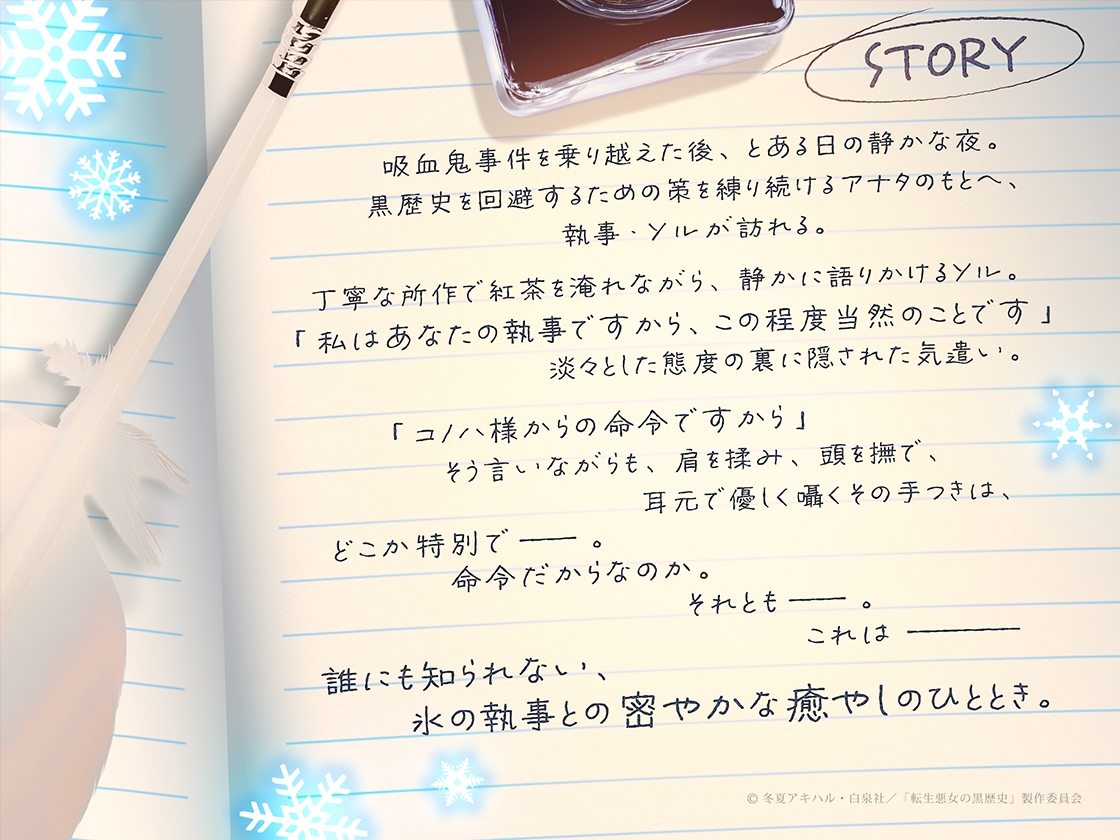 STORY
吸血鬼事件を乗り越えた後、とある日の静かな夜。
黒歴史を回避するための策を練り続けるアナタのもとへ、
執事・ソルが訪れる。
丁寧な所作で紅茶を淹れながら、静かに語りかけるソル。
「私はあなたの執事ですから、この程度当然のことです」
淡々とした態度の裏に隠された気遣い。
「コノハ様からの命令ですから」
そう言いながらも、肩を揉み、頭を撫で、
耳元で優しく囁くその手つきは、
どこか特別で――。
命令だからなのか。
それとも――。
これは――――
誰にも知られない、
氷の執事との密やかな癒やしのひととき。
© 冬夏アキハル・白泉社／「転生悪女の黒歴史」製作委員会